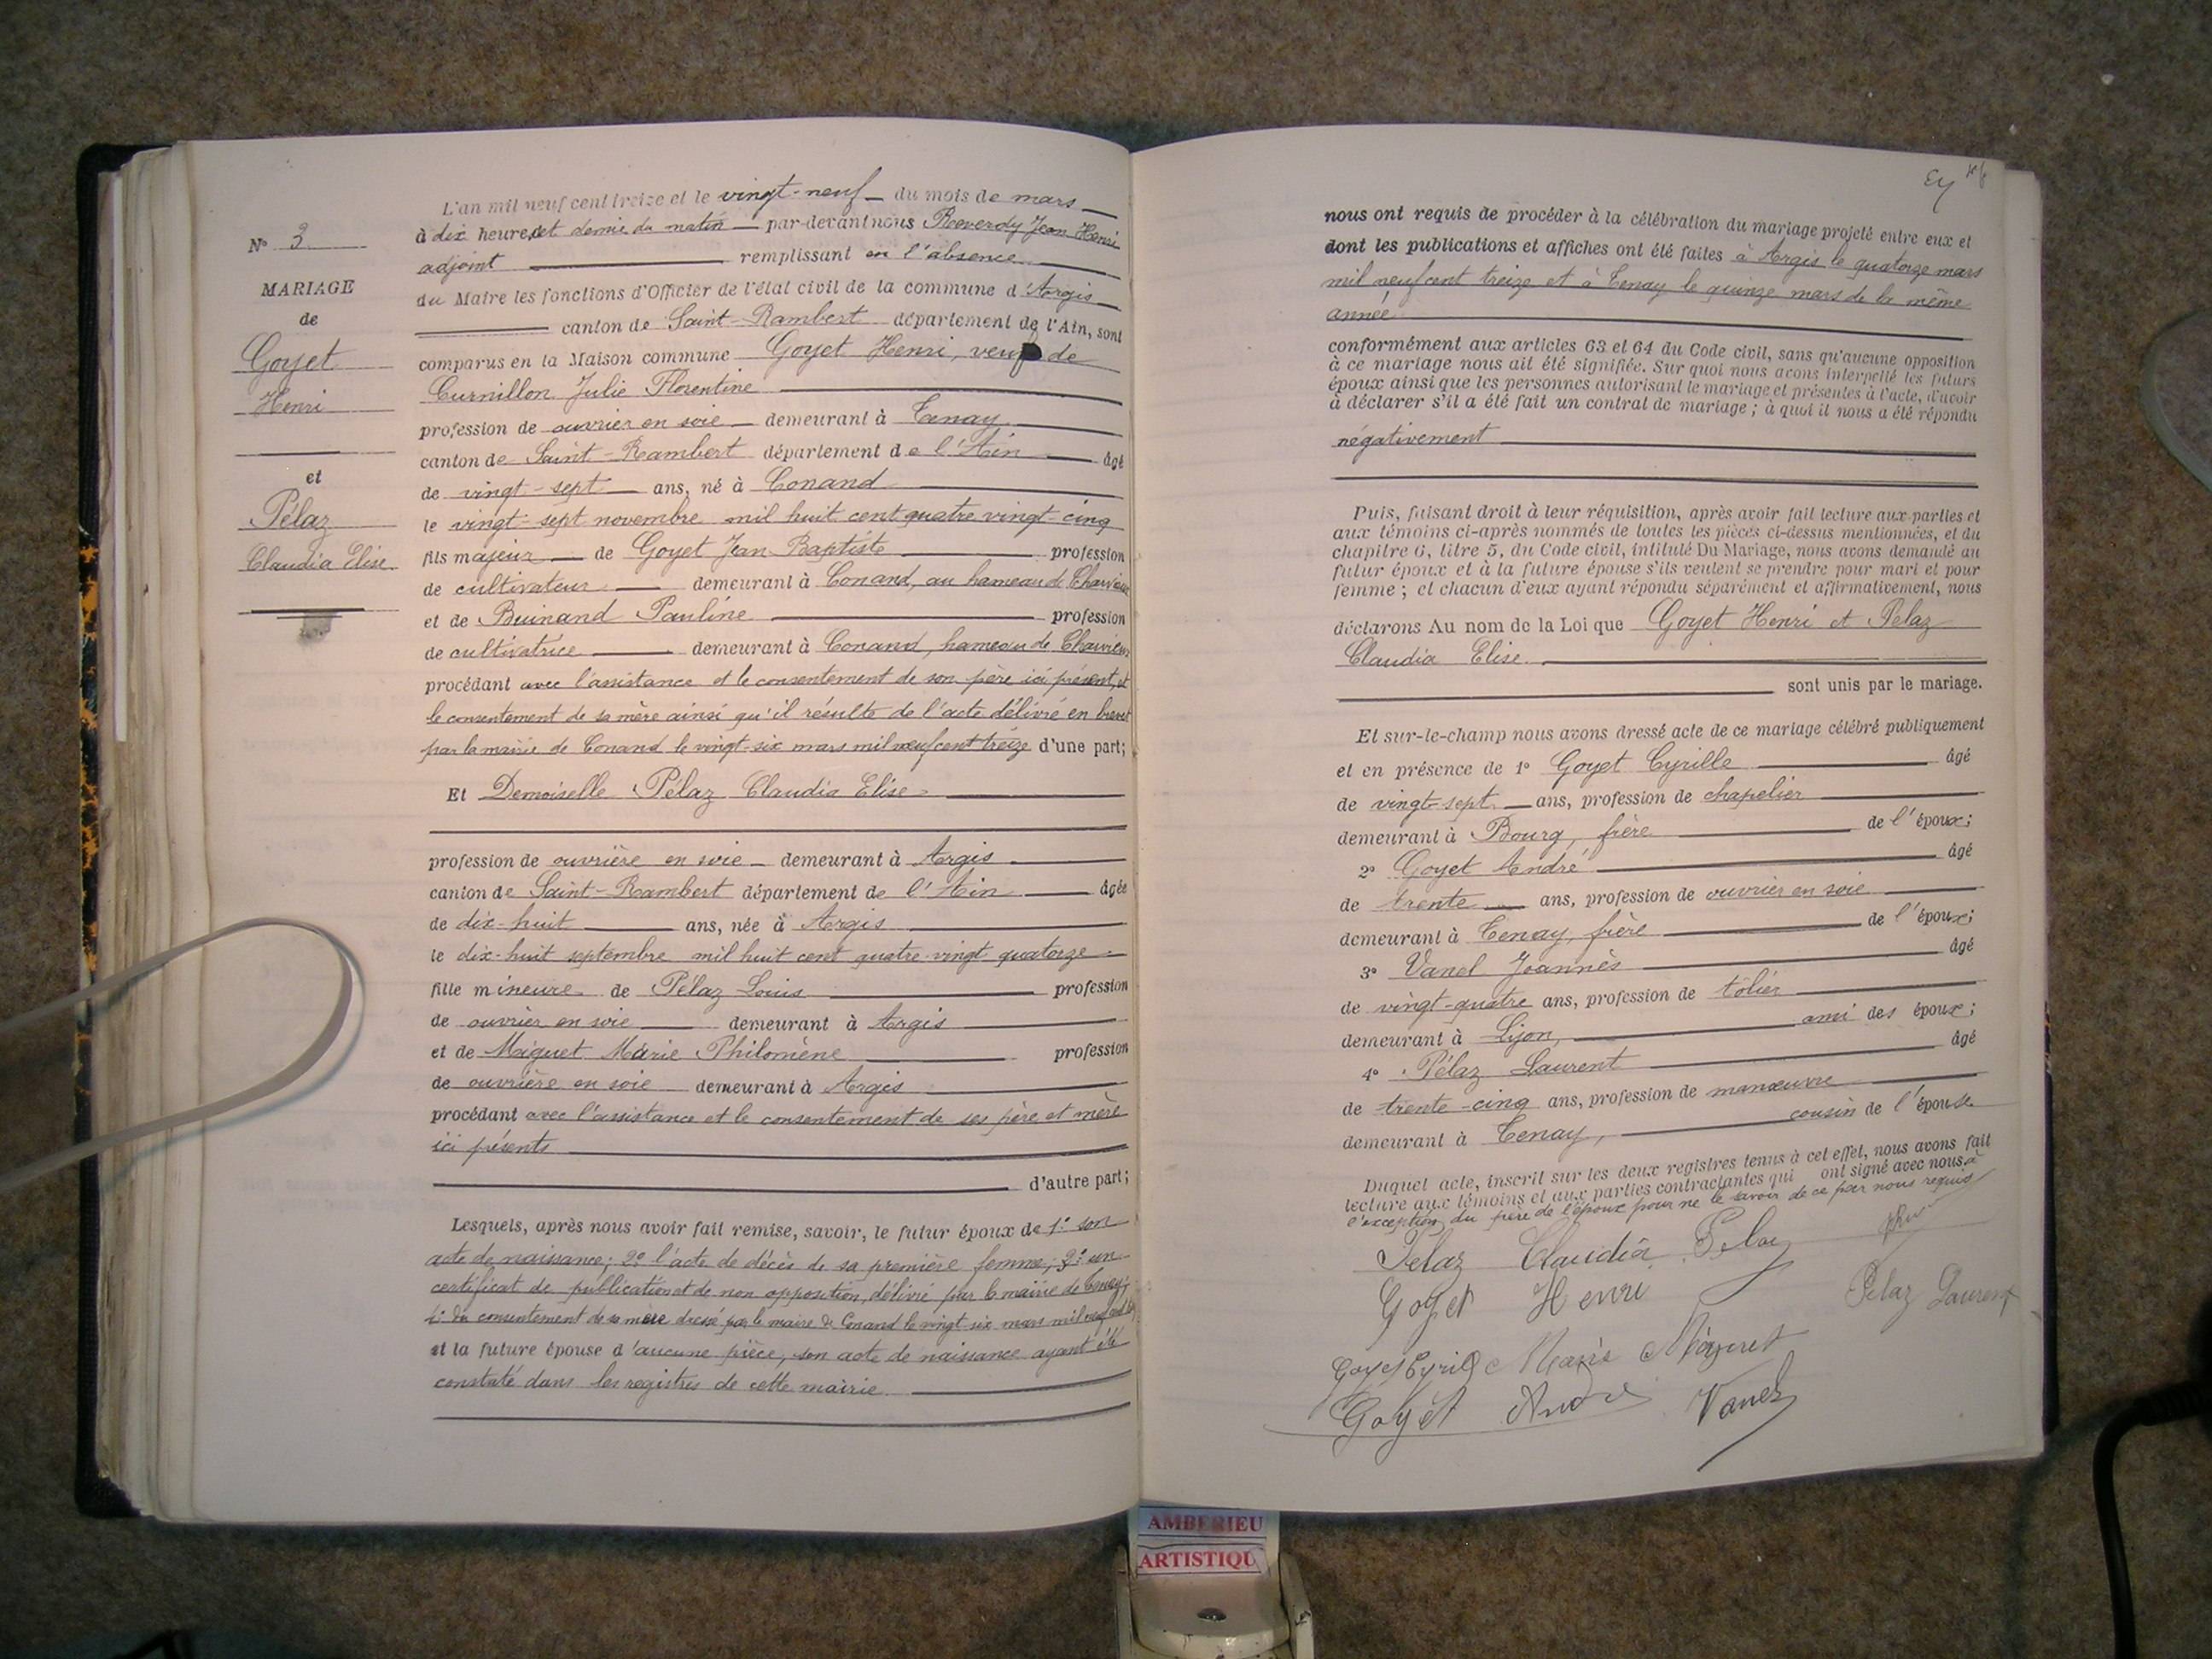 N° 3
MARIAGE
de
Goyet
Henri
et
Pélaz
Claudia Elise
L'an mil neuf cent treize et le vingt-neuf du mois de mars
à dix heures et demie du matin par-devant nous Reverdy Jean Henri
adjoint remplissant en l'absence
du Maire les fonctions d'Officier de l'état civil de la commune d'Argis
canton de Saint-Rambert département de l'Ain, sont
comparus en la Maison commune Goyet Henri, veuf de
Curnillon Julie Florentine
profession de ouvrier en soie demeurant à Tenay
canton de Saint-Rambert département de l'Ain âgé
de vingt-sept ans, né à Conand
le vingt-sept novembre mil huit cent quatre vingt-cinq
fils majeur de Goyet Jean-Baptiste profession
de cultivateur demeurant à Conand, au hameau de
et de Buinand Pauline profession
de cultivatrice demeurant à Conand, hameau de
procédant avec l'assistance et le consentement de son père ici présent, et
le consentement de sa mère ainsi qu'il résulte de l'acte délivré en brevet
par la mairie de Conand le vingt-six mars mil neuf cent treize d'une part;
Et Demoiselle Pélaz Claudia Elise
profession de ouvrière en soie demeurant à Argis
canton de Saint-Rambert département de l'Ain âgée
de dix-huit ans, née à Argis
le dix-huit septembre mil huit cent quatre-vingt quatorze
fille mineure de Pélaz Louis profession
de ouvrier en soie demeurant à Argis
et de Miguet Marie Philomène profession
de ouvrière en soie demeurant à Argis
procédant avec l'assistance et le consentement de ses père et mère
ici présents
d'autre part;
Lesquels, après nous avoir fait remise, savoir, le futur époux de 1° son
acte de naissance; 2° l'acte de décès de sa première femme; 3° un
certificat de publication et de non opposition, délivré par le mairie de Tenay;
4° du consentement de sa mère dressé par le maire de Conand le vingt-six mars mil neuf cent
et la future épouse d'aucune pièce, son acte de naissance ayant été
constaté dans les registres de cette mairie.
nous ont requis de procéder à la célébration du mariage projeté entre eux et
dont les publications et affiches ont été faites à Argis le quatorze mars
mil neuf cent treize et à Tenay le quinze mars de la même
année
conformément aux articles 63 et 64 du Code civil, sans qu'aucune opposition
à ce mariage nous ait été signifiée. Sur quoi nous avons interpellé les futurs
époux ainsi que les personnes autorisant le mariage et présentes à l'acte, d'avoir
à déclarer s'il a été fait un contrat de mariage; à quoi il nous a été répondu
négativement
Puis, faisant droit à leur réquisition, après avoir fait lecture aux parties et
aux témoins ci-après nommés de toutes les pièces ci-dessus mentionnées, et du
chapitre 6, titre 5, du Code civil, intitulé Du Mariage, nous avons demandé au
futur époux et à la future épouse s'ils veulent se prendre pour mari et pour
femme; et chacun d'eux ayant répondu séparément et affirmativement, nous
déclarons Au nom de la Loi que Goyet Henri et Pélaz
Claudia Elise
sont unis par le mariage.
Et sur-le-champ nous avons dressé acte de ce mariage célébré publiquement
et en présence de 1° Goyet Cyrille âgé
de vingt-sept ans, profession de chapelier
demeurant à Bourg, frère de l'époux;
2° Goyet André âgé
de trente ans, profession de ouvrier en soie
demeurant à Tenay, frère de l'époux;
3° Vanel Joannès âgé
de vingt-quatre ans, profession de tôlier
demeurant à Lyon, ami des époux;
4° Pélaz Laurent âgé
de trente-cinq ans, profession de manœuvre
demeurant à Tenay, cousin de l'épouse
Duquel acte, inscrit sur les deux registres tenus à cet effet, nous avons fait
lecture aux témoins et aux parties contractantes qui ont signé avec nous à
l'exception du père de l'époux pour ne le savoir de ce par nous requis
Pelaz Claudia Pelaz
Goyet Henri Pelaz Laurent
Goyet Cyrille Marie Miguet
Goyet André Vanel
AMBERIEU
ARTISTIQU